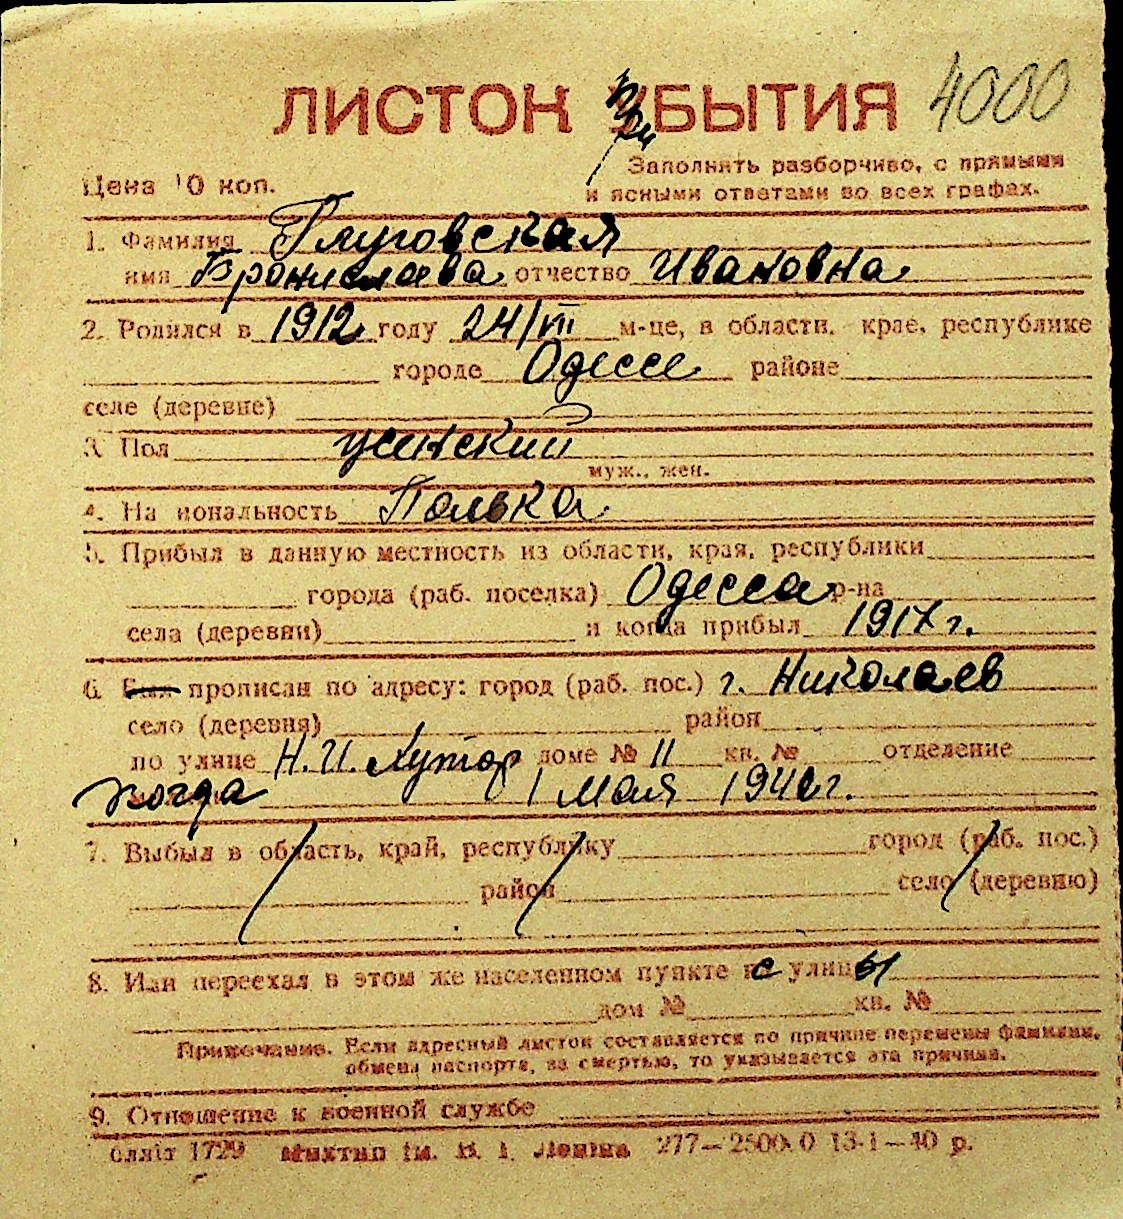 ЛИСТОК При УБЫТИЯ 4000
Цена 10 коп.
Заполнять разборчиво, с прямыми
и ясными ответами во всех графах.
1. Фамилия Глуговская
имя Бронислава отчество Ивановна
2. Родился в 1912 году 24/VII м-це, в области, крае, республике
городе Одессе районе
селе (деревне)
3. Пол женский
муж., жен.
4. На иональность Полька
5. Прибыл в данную местность из области, края, республики
города (раб. поселка) Одесса р-на
села (деревни) и когда прибыл 1917 г.
6. Был прописан по адресу: город (раб. пос.) г. Николаев
село (деревня) район
по улице Н. И. Хутор доме № 11 кв. № отделение
когда 1 Мая 1940 г.
7. Выбыл в область, край, республику город (раб. пос.)
район село (деревню)
8. Или переехал в этом же населенном пункте с улицы
дом № кв. №
Примечание. Если адресный листок составляется по причине перемены фамилии,
обмена паспорта, за смертью, то указывается эта причина.
9. Отношение к военной службе
1729 ім. В. І. Леніна 277—2500.0 13-1—40 р.